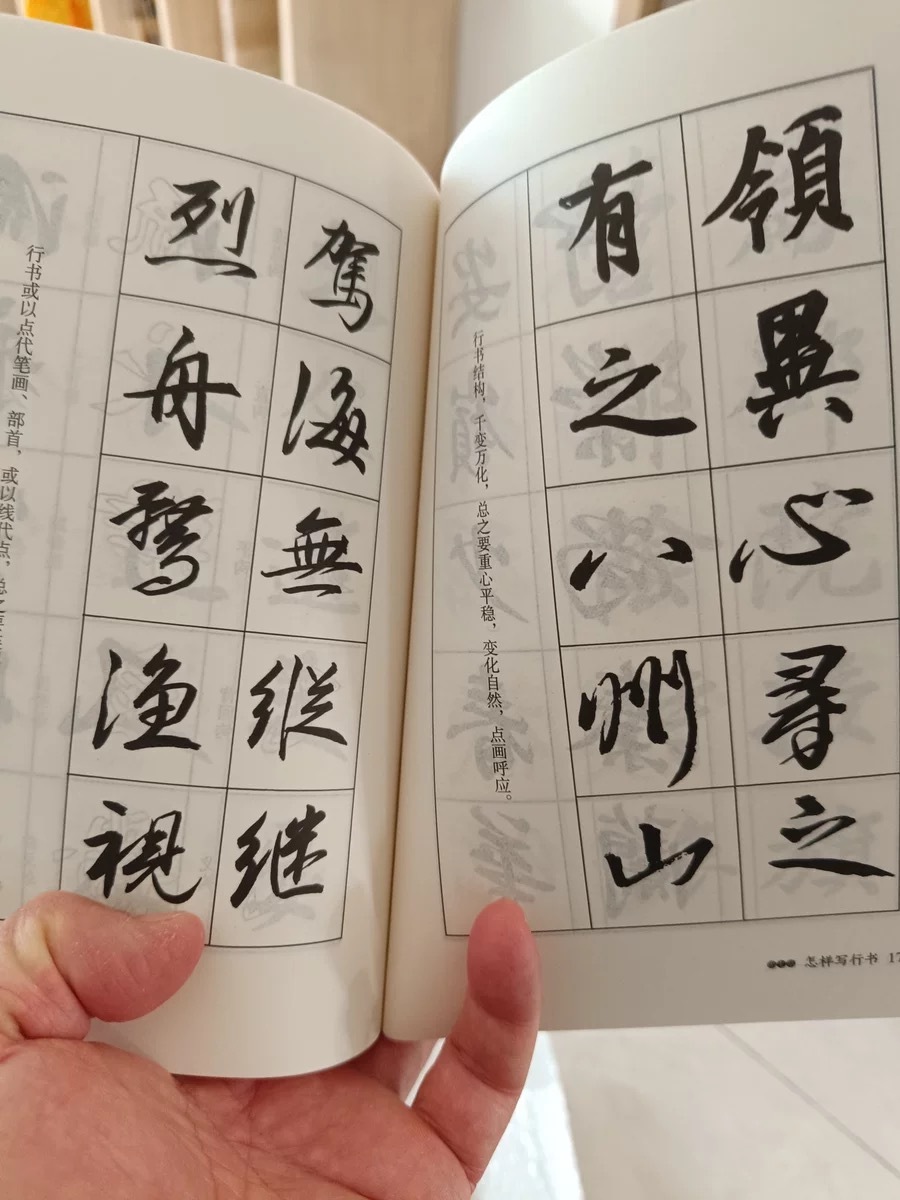 駕海無纵继
烈舟鶩渔視
行书或以点代笔画、部首，或以线代点，总之要
領異心尋之
有之八州山
行书结构，千变万化，总之要重心平稳，变化自然，点画呼应。
怎样写行书 17